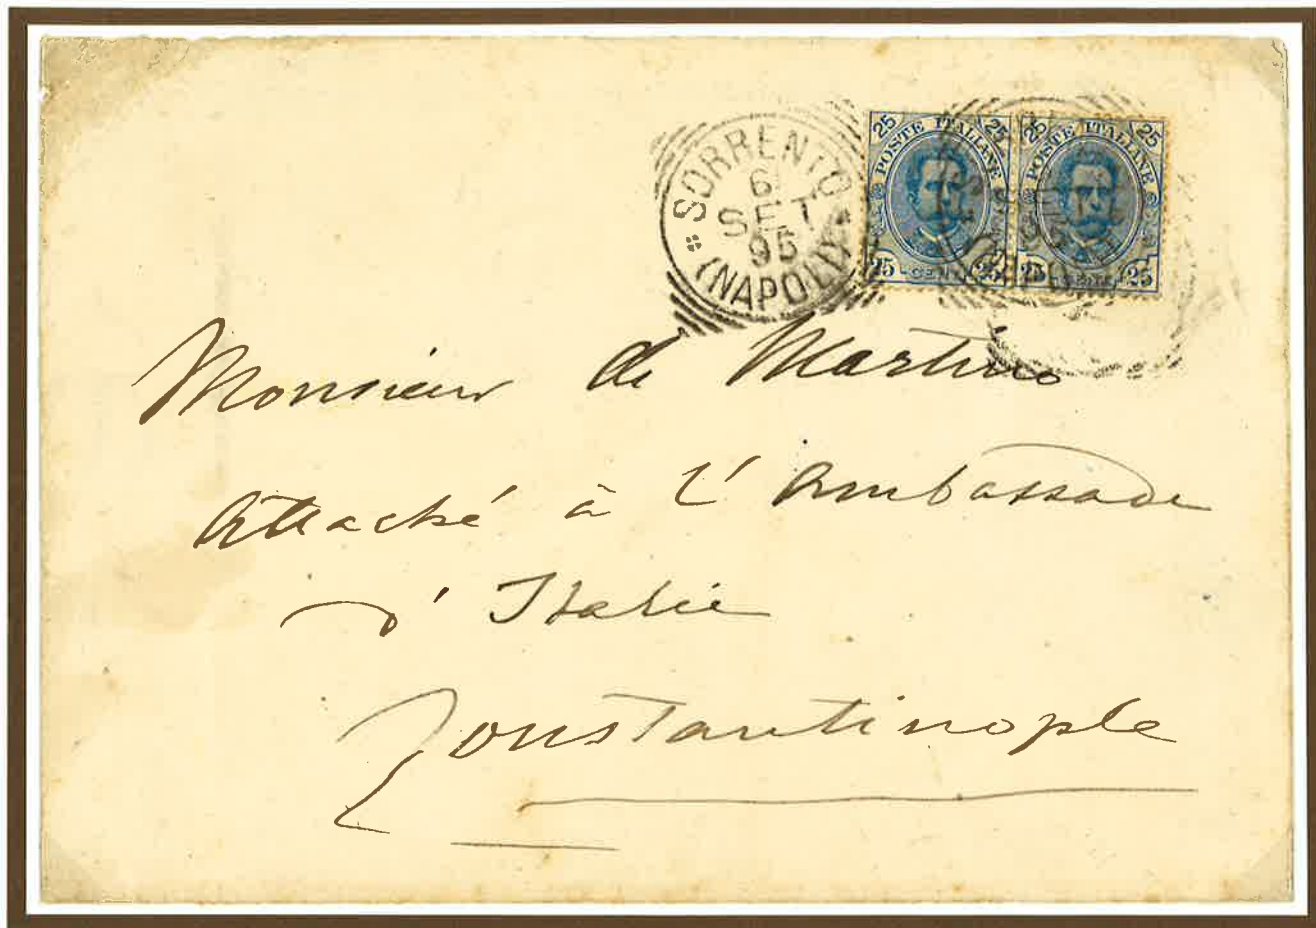 SORRENTO
6
SET
95
(NAPOLI)
25 POSTE ITALIANE 25
25 - CENT 25
25 POSTE ITALIANE 25
25 25
Monsieur de Martino
Attaché à l'Ambassade
d'Italie
Constantinople